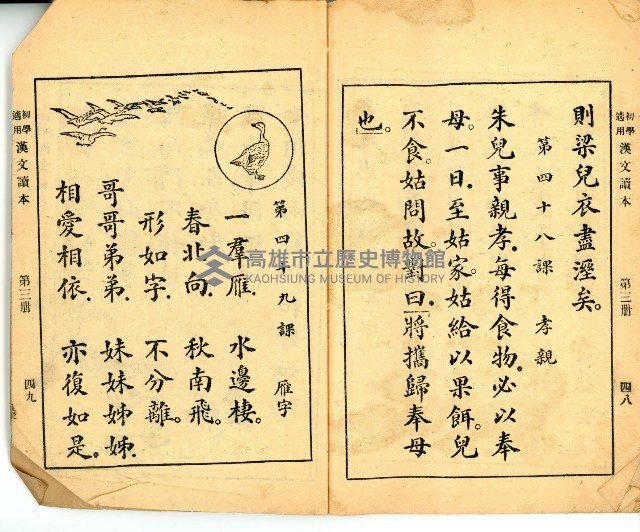 初學適用 漢文讀本 第三册 四八
則梁兒衣盡溼矣。
第四十八課 孝親
朱兒事親孝。每得食物。必以奉
母。一日。至姑家。姑給以果餌。兒
不食。姑問故。對曰。「將攜歸奉母
也。」
第四十九課 雁字
一羣雁。水邊棲。
春北向。秋南飛。
形如字。不分離。
哥哥弟弟。妹妹姊姊。
相愛相依。亦復如是。
初學適用 漢文讀本 第三册 四九
高雄市立歷史博物館
KAOHSIUNG MUSEUM OF HISTORY